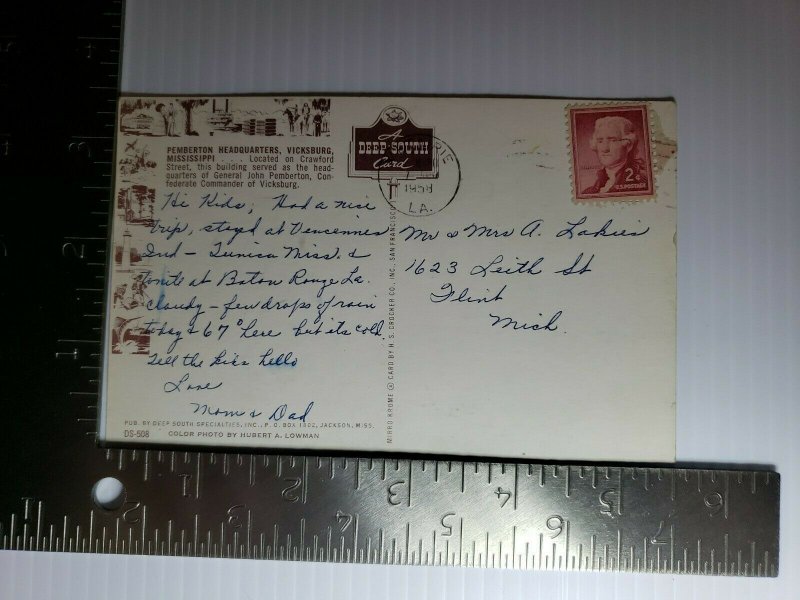 PEMBERTON HEADQUARTERS, VICKSBURG,
MISSISSIPPI . . . Located on Crawford
Street, this building served as the head-
quarters of General John Pemberton, Con-
federate Commander of Vicksburg.
A
DEEP-SOUTH
Card
1958
LA.
2¢
U.S. POSTAGE
Hi Kids, Had a nice
trip, stayed at Vencennes
Ind - Tunica Miss. &
tonite at Baton Rouge La.
cloudy - few drops of rain
today & 67° here but its cold.
Tell the kids hello
Love
Mom & Dad
Mr & Mrs A. Lakies
1623 Leith St
Flint
Mich.
PUB. BY DEEP SOUTH SPECIALTIES, INC., P. O. BOX 1902, JACKSON, MISS.
DS-508 COLOR PHOTO BY HUBERT A. LOWMAN
MIRRO KROME ® CARD BY H. S. CROCKER CO., INC., SAN FRANCISCO
1 2 3 4 5 6
1 2 3 4 5 6